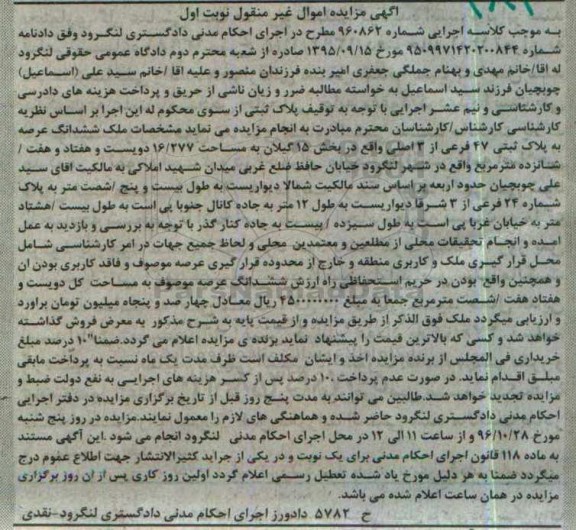 ۱۸۲
آگهی مزایده اموال غیر منقول نوبت اول
به موجب کلاسه اجرایی شماره ۹۶۰۸۶۲ مطرح در اجرای احکام مدنی دادگستری لنگرود وفق دادنامه
شماره ۹۵۰۹۹۷۱۴۲۰۲۰۰۸۴۴ مورخ ۱۳۹۵/۰۹/۱۵ صادره از شعبه محترم دوم دادگاه عمومی حقوقی لنگرود
له اقا/خانم مهدی و بهنام جملگی جعفری امیر بنده فرزندان منصور و علیه اقا /خانم سید علی (اسماعیل)
چوبچیان فرزند سید اسماعیل به خواسته مطالبه ضرر و زیان ناشی از حریق و پرداخت هزینه های دادرسی
و کارشناسی و نیم عشر اجرایی با توجه به توقیف پلاک ثبتی از سوی محکوم له این اجرا بر اساس نظریه
کارشناسی کارشناس/کارشناسان محترم مبادرت به انجام مزایده می نماید مشخصات ملک ششدانگ عرصه
به پلاک ثبتی ۴۷ فرعی از ۳ اصلی واقع در بخش ۱۵ گیلان به مساحت ۱۶/۲۷۷ دویست و هفتاد و هفت /
شانزده مترمربع واقع در شهر لنگرود خیابان حافظ ضلع غربی میدان شهید املاکی به مالکیت اقای سید
علی چوبچیان حدود اربعه بر اساس سند مالکیت شمالا دیواریست به طول بیست و پنج /شصت متر به پلاک
شماره ۲۴ فرعی از ۳ شرقا دیواریست به طول ۱۲ متر به جاده کانال جنوبا پی است به طول بیست /هشتاد
متر به خیابان غربا پی است به طول سیزده / بیست به جاده کنار گذر با توجه به بررسی و بازدید به عمل
امده و انجام تحقیقات محلی از مطلعین و معتمدین محلی و لحاظ جمیع جهات در امر کارشناسی شامل
محل قرار گیری ملک و کاربری منطقه و خارج از محدوده قرار گیری عرصه موصوف و فاقد کاربری بودن ان
و همچنین واقع بودن در حریم استحفاظی راه ارزش ششدانگ عرصه موصوف به مساحت کل دویست و
هفتاد هفت /شصت مترمربع جمعا به مبلغ ۴۵۰۰۰۰۰۰۰۰ ریال معادل چهار صد و پنجاه میلیون تومان براورد
و ارزیابی میگردد ملک فوق الذکر از طریق مزایده و از قیمت پایه به شرح مذکور به معرض فروش گذاشته
خواهد شد و کسی که بالاترین قیمت را پیشنهاد نماید برنده ی مزایده اعلام می گردد.ضمنا"۱۰ درصد مبلغ
خریداری فی المجلس از برنده مزایده اخذ و ایشان مکلف است ظرف مدت یک ماه نسبت به پرداخت مابقی
مبلغ اقدام نماید. در صورت عدم پرداخت ۱۰ درصد پس از کسر هزینه های اجرایی به نفع دولت ضبط و
مزایده تجدید خواهد شد.طالبین می توانند به مدت پنج روز قبل از تاریخ برگزاری مزایده در دفتر اجرایی
احکام مدنی دادگستری لنگرود حاضر شده و هماهنگی های لازم را معمول نمایند.مزایده در روز پنج شنبه
مورخ ۹۶/۱۰/۲۸ و از ساعت ۱۱ الی ۱۲ در محل اجرای احکام مدنی لنگرود انجام می شود .این آگهی مستند
به ماده ۱۱۸ قانون اجرای احکام مدنی برای یک نوبت و در یکی از جراید کثیرالانتشار جهت اطلاع عموم درج
میگردد ضمنا به هر دلیل مورخ یاد شده تعطیل رسمی اعلام گردد اولین روز کاری پس از ان روز برگزاری
مزایده در همان ساعت اعلام شده می باشد.
ح ۵۷۸۲ دادورز اجرای احکام مدنی دادگستری لنگرود-نقدی